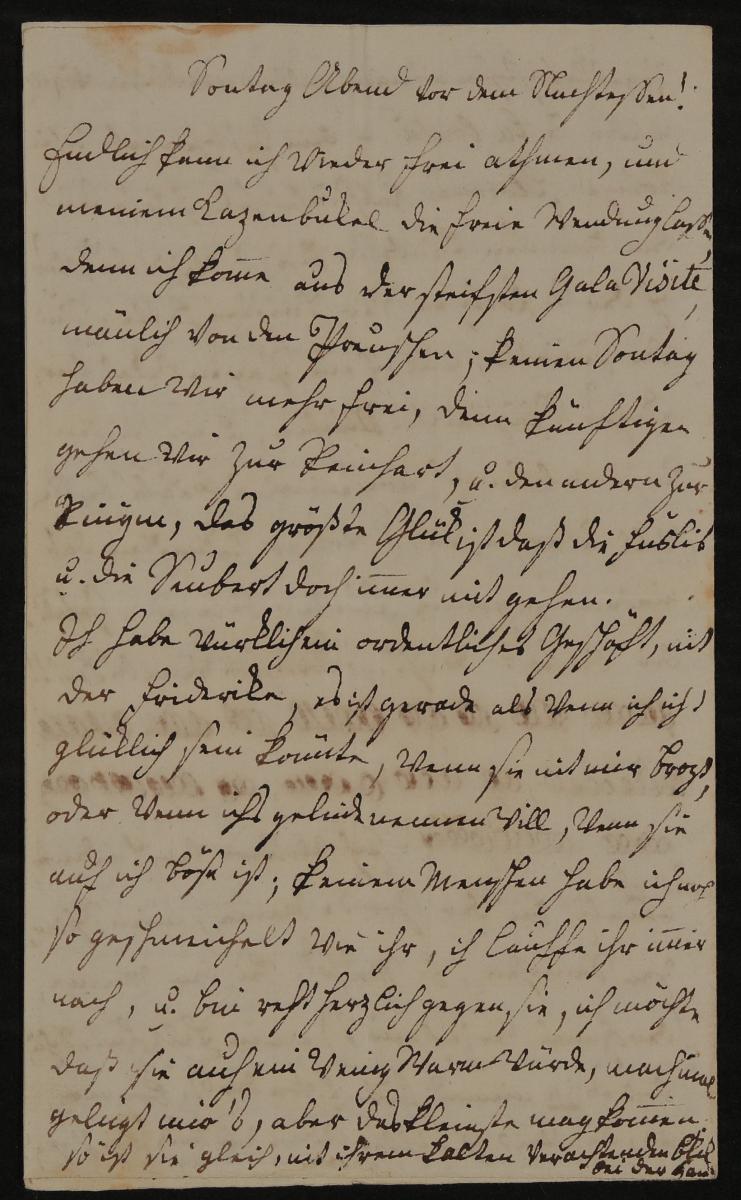 Sontag Abend vor dem Nachtessen!
Endlich kann ich wieder frei athmen, und
meinem Kazenbukel die freie Wendung lassen,
denn ich kome aus der steifsten Gala Visite,
nämlich von den Preusschen; keinen Sontag
haben wir mehr frei, denn künftigen
gehen wir zur Reinhart, u. den andern zur
das größte Glük ist daß die Füslis
u. die Seubert doch imer mit gehen.
Ich habe würklich ein ordentliches Geschäft, mit
der Friderike, es ist gerade als wenn ich nicht
glüklich sein könnte, wenn sie mit mir brozt,
oder wenn ichs gelind nennen will, wenn sie
auf mich böse ist; keinem Menschen habe ich noch
so geschmeichelt wie ihr, ich lauffe ihr imer
nach, u. bin recht herzlich gegen sie, ich möchte
daß sie auch ein wenig warm würde, machmal
gelingt mir's, aber das kleinste mag komen
so ist sie gleich, mit ihrem kalten verachtenden Blik
bei der Hand